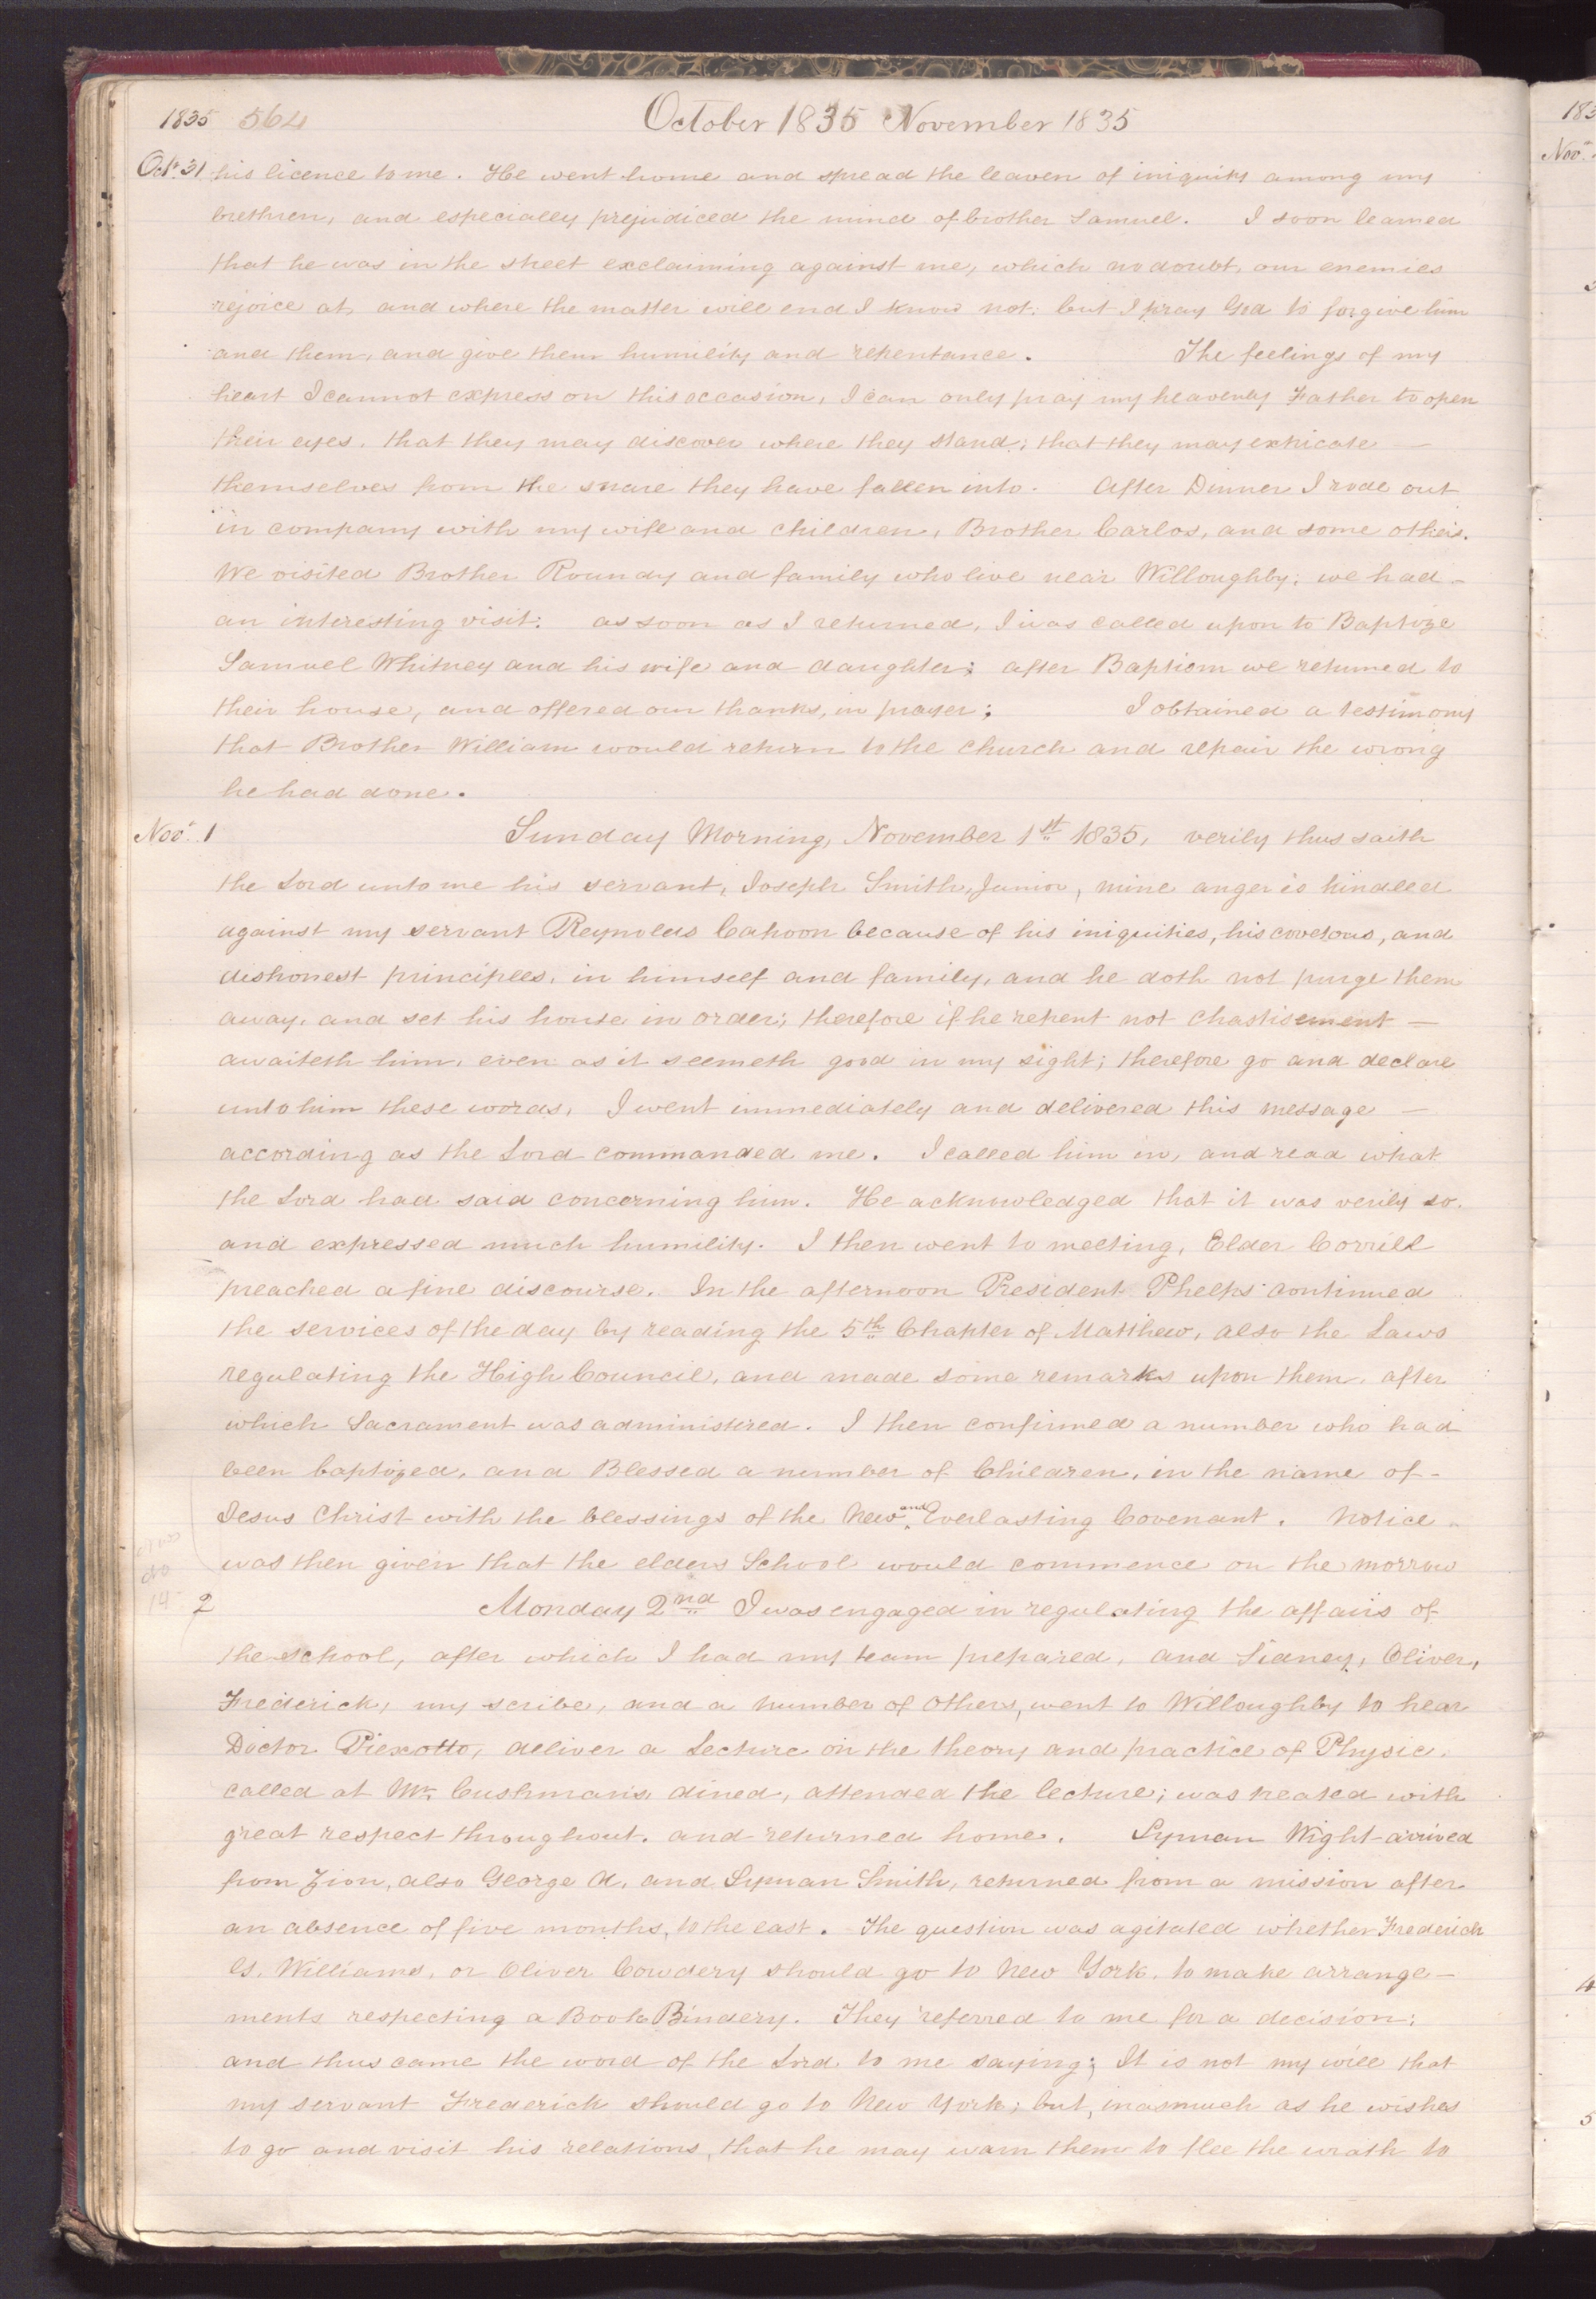 1835 564 October 1835 November 1835
Oct. 31 his licence to me. He went home and spread the leaven of iniquity among my
brethren, and especially prejudiced the mind of brother Samuel. I soon learned
that he was in the street exclaiming against me, which no doubt, our enemies
rejoice at, and where the matter will end I know not; but I pray God to forgive him
and them, and give them humility and repentance. The feelings of my
heart I cannot express on this occasion, I can only pray my heavenly Father to open
their eyes, that they may discover where they stand; that they may extricate —
themselves from the snare they have fallen into. After Dinner I rode out
in company with my wife and children, Brother Carlos, and some others.
We visited Brother Roundy and family who live near Willoughby; we had -
an interesting visit: as soon as I returned, I was called upon to Baptize
Samuel Whitney and his wife and daughter; after Baptism we returned to
their house, and offered our thanks, in prayer; I obtained a testimony
that Brother William would return to the church and repair the wrong
he had done.
Nov. 1 Sunday Morning, November 1st 1835, verily thus saith
the Lord unto me his servant, Joseph Smith, Junior, mine anger is kindled
against my servant Reynolds Cahoon because of his iniquities, his covetous, and
dishonest principles, in himself and family, and he doth not purge them
away, and set his house in order; therefore if he repent not chastisement —
awaiteth him, even as it seemeth good in my sight; therefore go and declare
unto him these words, I went immediately and delivered this message —
according as the Lord commanded me. I called him in, and read what
the Lord had said concerning him. He acknowledged that it was verily so.
and expressed much humility. I then went to meeting, Elder Corrill
preached a fine discourse. In the afternoon President Phelps continued
the services of the day by reading the 5th Chapter of Matthew, also the Laws
regulating the High Council, and made some remarks upon them, after
which Sacrament was administered. I then confirmed a number who had
been baptized, and Blessed a number of Children, in the name of -
Jesus Christ with the blessings of the New and Everlasting Covenant. Notice -
was then given that the elders School would commence on the morrow
2 Monday 2nd I was engaged in regulating the affairs of
the school, after which I had my team prepared, and Sidney, Oliver,
Frederick, my scribe, and a number of others, went to Willoughby to hear
Doctor Piexotto, deliver a Lecture on the theory and practice of Physic.
called at Mr. Cushman's, dined, attended the lecture; was treated with
great respect throughout. and returned home. Lyman Wight arrived
from Zion, also George A. and Lyman Smith, returned from a mission after
an absence of five months, to the east. - The question was agitated whether Frederick
G. Williams, or Oliver Cowdery should go to New York, to make arrange-
ments respecting a Book Bindery. They referred to me for a decision;
and thus came the word of the Lord to me saying; It is not my will that
my servant Frederick should go to New York; but, inasmuch as he wishes
to go and visit his relations, that he may warn them to flee the wrath to
183
Nov.
4
5